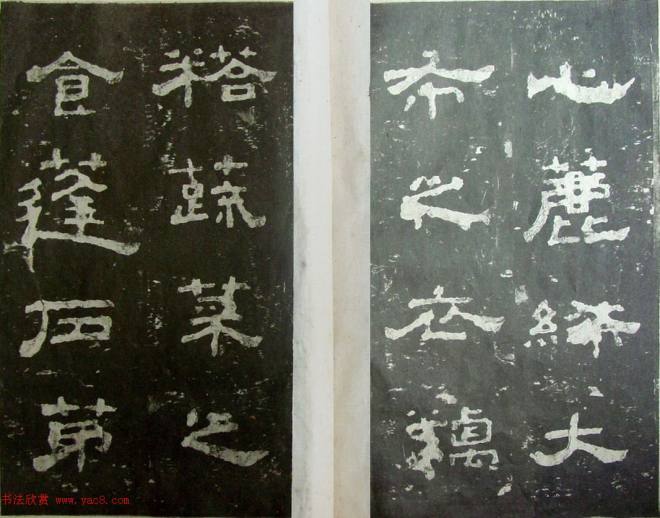 心麤絺大
布之衣糲
荅蔬菜之
食蓬戶茅
书法欣赏 www.yac8.com